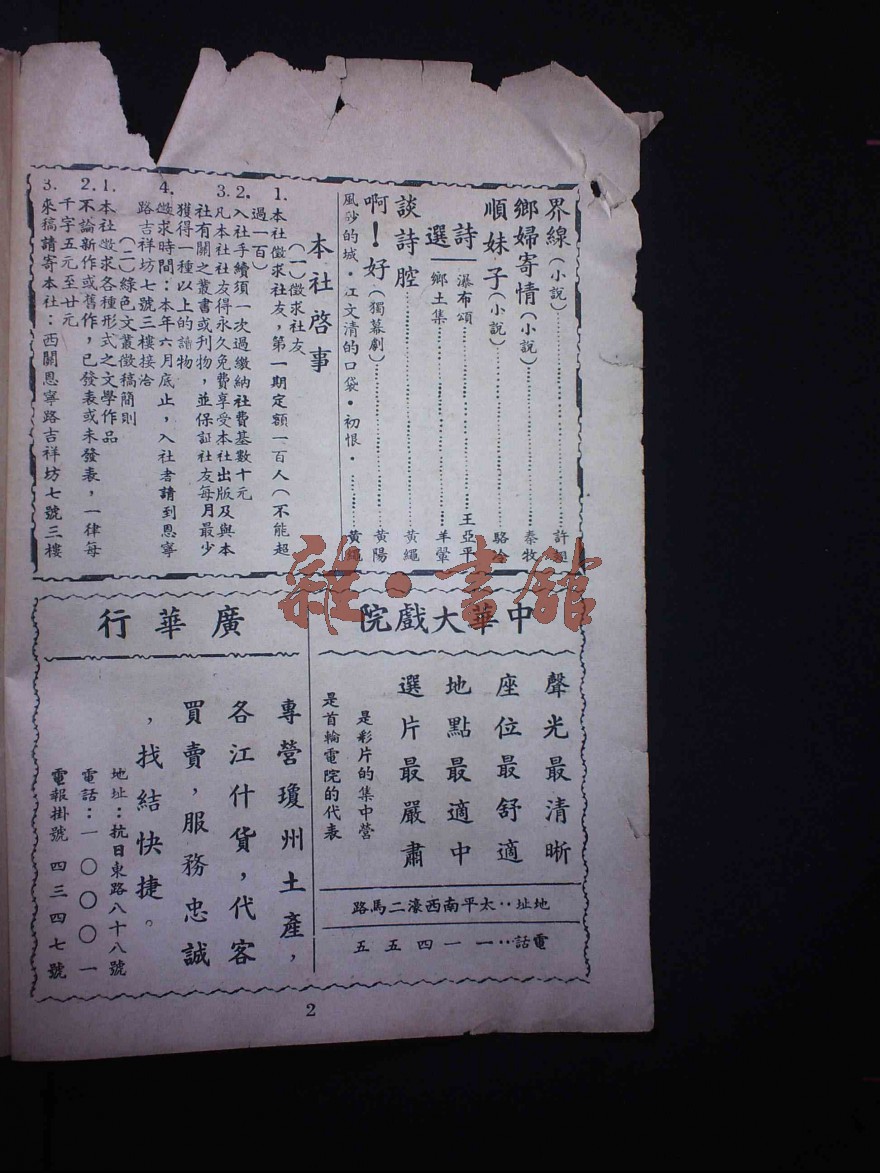 界線(小說)……許
鄉婦寄情(小說)……秦牧
順妹子(小說)……駱
詩選
瀑布頌……王亞平
鄉土集……羊翬
談詩腔……黃繩
啊!好(獨幕劇)……黃陽
風砂的城•江文清的口袋•初恨•……黃繩
本社啓事
(一)徵求社友
1.本社徵求社友,第一期定額一百人(不能超
過一百)
2.入社手續須一次過繳納社費基數十元
3.凡本社社友得永久免費享受本社出版及與本
社有關之叢書或刋物,並保証社友每月最少
獲得一種以上的讀物
4.徵求時間:本年六月底止,入社者請到恩寧
路吉祥坊七號三樓接洽
(二)綠色文叢徵稿簡則
1.本社徵求各種形式之文學作品
2.不論新作或舊作,已發表或未發表,一律每
千字五元至廿元
3.來稿請寄本社:西關恩寧路吉祥坊七號三樓
中華大戲院
聲光最清晰
座位最舒適
地點最適中
選片最嚴肅
是彩片的集中營
是首輪電院的代表
地址:太平南西濠二馬路
電話:一一四五五
廣華行
專營瓊州土產,
各江什貨,代客
買賣,服務忠誠
,找結快捷。
地址:抗日東路八十八號
電話:一〇〇〇一
電報掛號 四三四七號
2
雜·書館